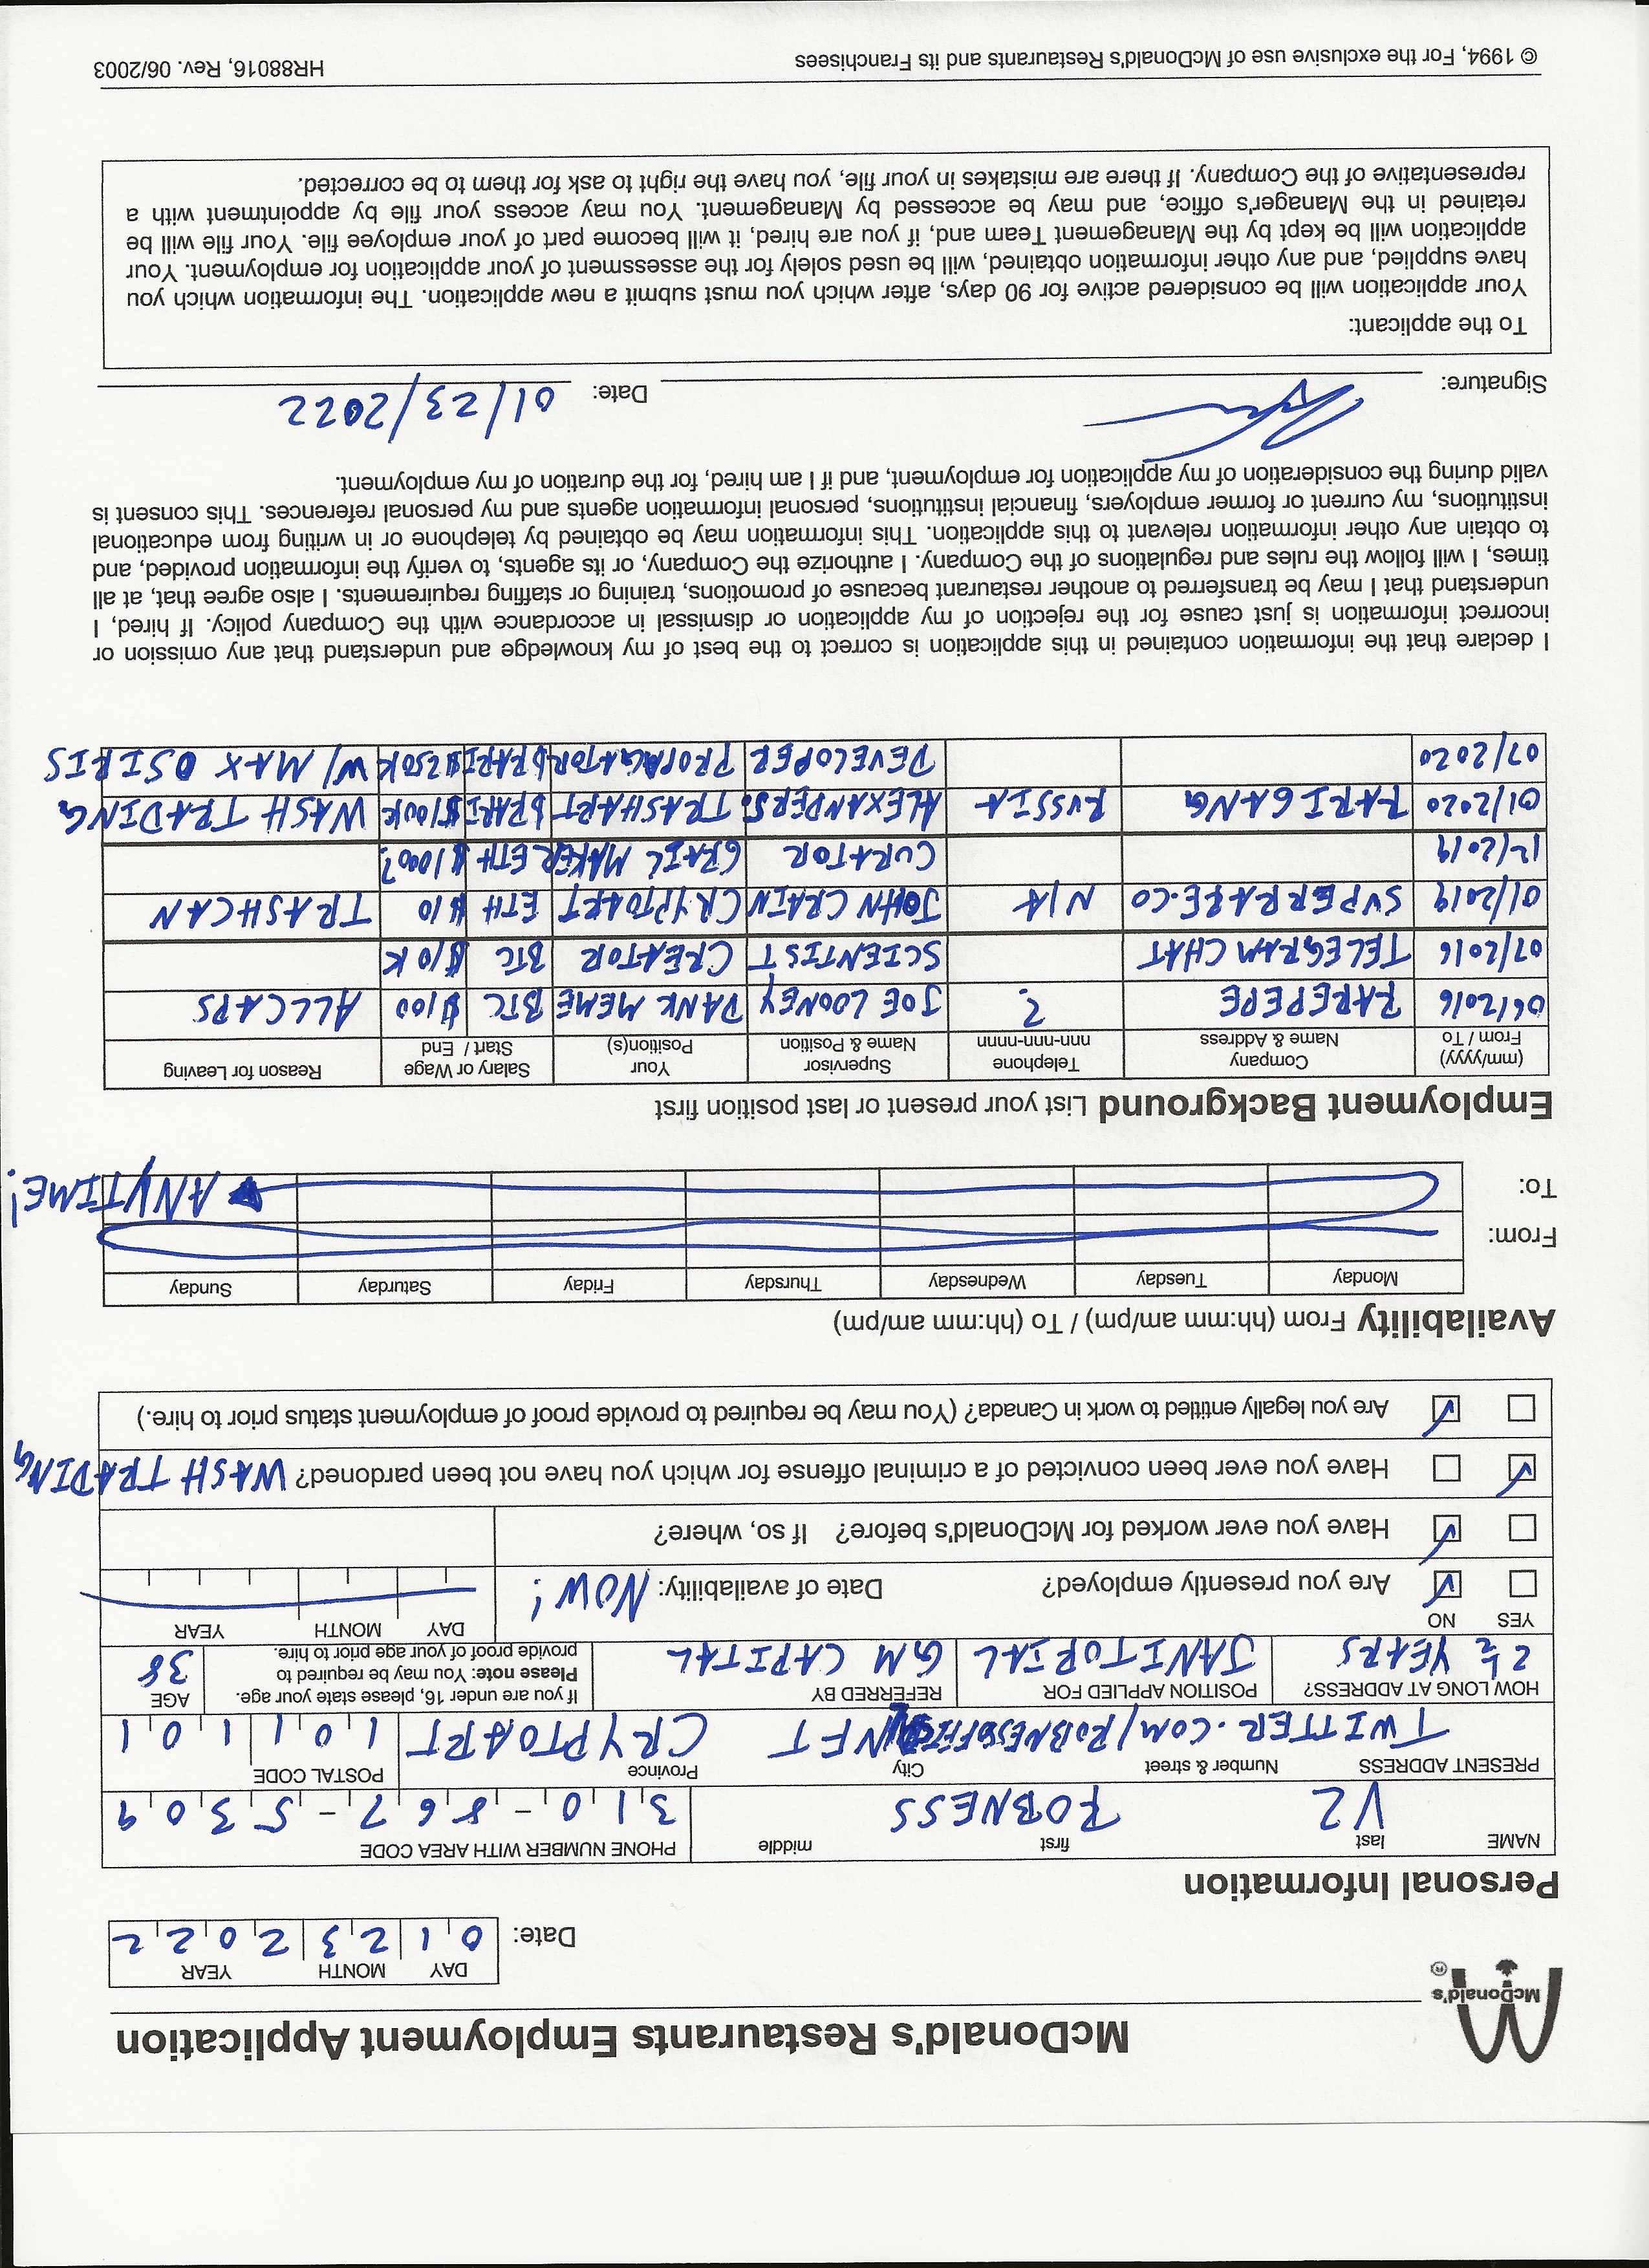 McDonald's
®
McDonald's Restaurants Employment Application
DAY MONTH YEAR
Date: 0 1 2 3 2 0 2 2
Personal Information
NAME last first middle PHONE NUMBER WITH AREA CODE
V2 ROBNESS 310-867-5309
PRESENT ADDRESS Number & street City Province POSTAL CODE
TWITTER.COM/ROBNESSOFFICIAL NFT CRYPTOART 1 0 1 1 0 1
HOW LONG AT ADDRESS? POSITION APPLIED FOR REFERRED BY If you are under 16, please state your age. AGE
2½ YEARS JANITORIAL GM CAPITAL Please note: You may be required to 38
provide proof of your age prior to hire.
YES NO DAY MONTH YEAR
Are you presently employed? Date of availability: NOW!
Have you ever worked for McDonald's before? If so, where?
Have you ever been convicted of a criminal offense for which you have not been pardoned? WASH TRADING
Are you legally entitled to work in Canada? (You may be required to provide proof of employment status prior to hire.)
Availability From (hh:mm am/pm) / To (hh:mm am/pm)
Monday Tuesday Wednesday Thursday Friday Saturday Sunday
From:
To: ANYTIME!
Employment Background List your present or last position first
(mm/yyyy) Company Telephone Supervisor Your Salary or Wage Reason for Leaving
From / To Name & Address nnn-nnn-nnnn Name & Position Position(s) Start / End
06/2016 RAREPEPE ? JOE LOONEY DANK MEME BTC $100 ALLCAPS
07/2016 TELEGRAM CHAT SCIENTIST CREATOR BTC $10K
01/2019 SUPERRARE.CO N/A JOHN CRAIN CRYPTOART ETH $10 TRASHCAN
12/2019 CURATOR GRAIL MAKER ETH $1000?
01/2020 RARIGANG RUSSIA ALEXANDER S. TRASHART $RARI $100K WASH TRADING
07/2020 DEVELOPER PROPAGATOR $RARI $250K W/ MAX OSIRIS
I declare that the information contained in this application is correct to the best of my knowledge and understand that any omission or
incorrect information is just cause for the rejection of my application or dismissal in accordance with the Company policy. If hired, I
understand that I may be transferred to another restaurant because of promotions, training or staffing requirements. I also agree that, at all
times, I will follow the rules and regulations of the Company. I authorize the Company, or its agents, to verify the information provided, and
to obtain any other information relevant to this application. This information may be obtained by telephone or in writing from educational
institutions, my current or former employers, financial institutions, personal information agents and my personal references. This consent is
valid during the consideration of my application for employment, and if I am hired, for the duration of my employment.
Signature: Date: 01/23/2022
To the applicant:
Your application will be considered active for 90 days, after which you must submit a new application. The information which you
have supplied, and any other information obtained, will be used solely for the assessment of your application for employment. Your
application will be kept by the Management Team and, if you are hired, it will become part of your employee file. Your file will be
retained in the Manager's office, and may be accessed by Management. You may access your file by appointment with a
representative of the Company. If there are mistakes in your file, you have the right to ask for them to be corrected.
© 1994, For the exclusive use of McDonald's Restaurants and its Franchisees HR88016, Rev. 06/2003